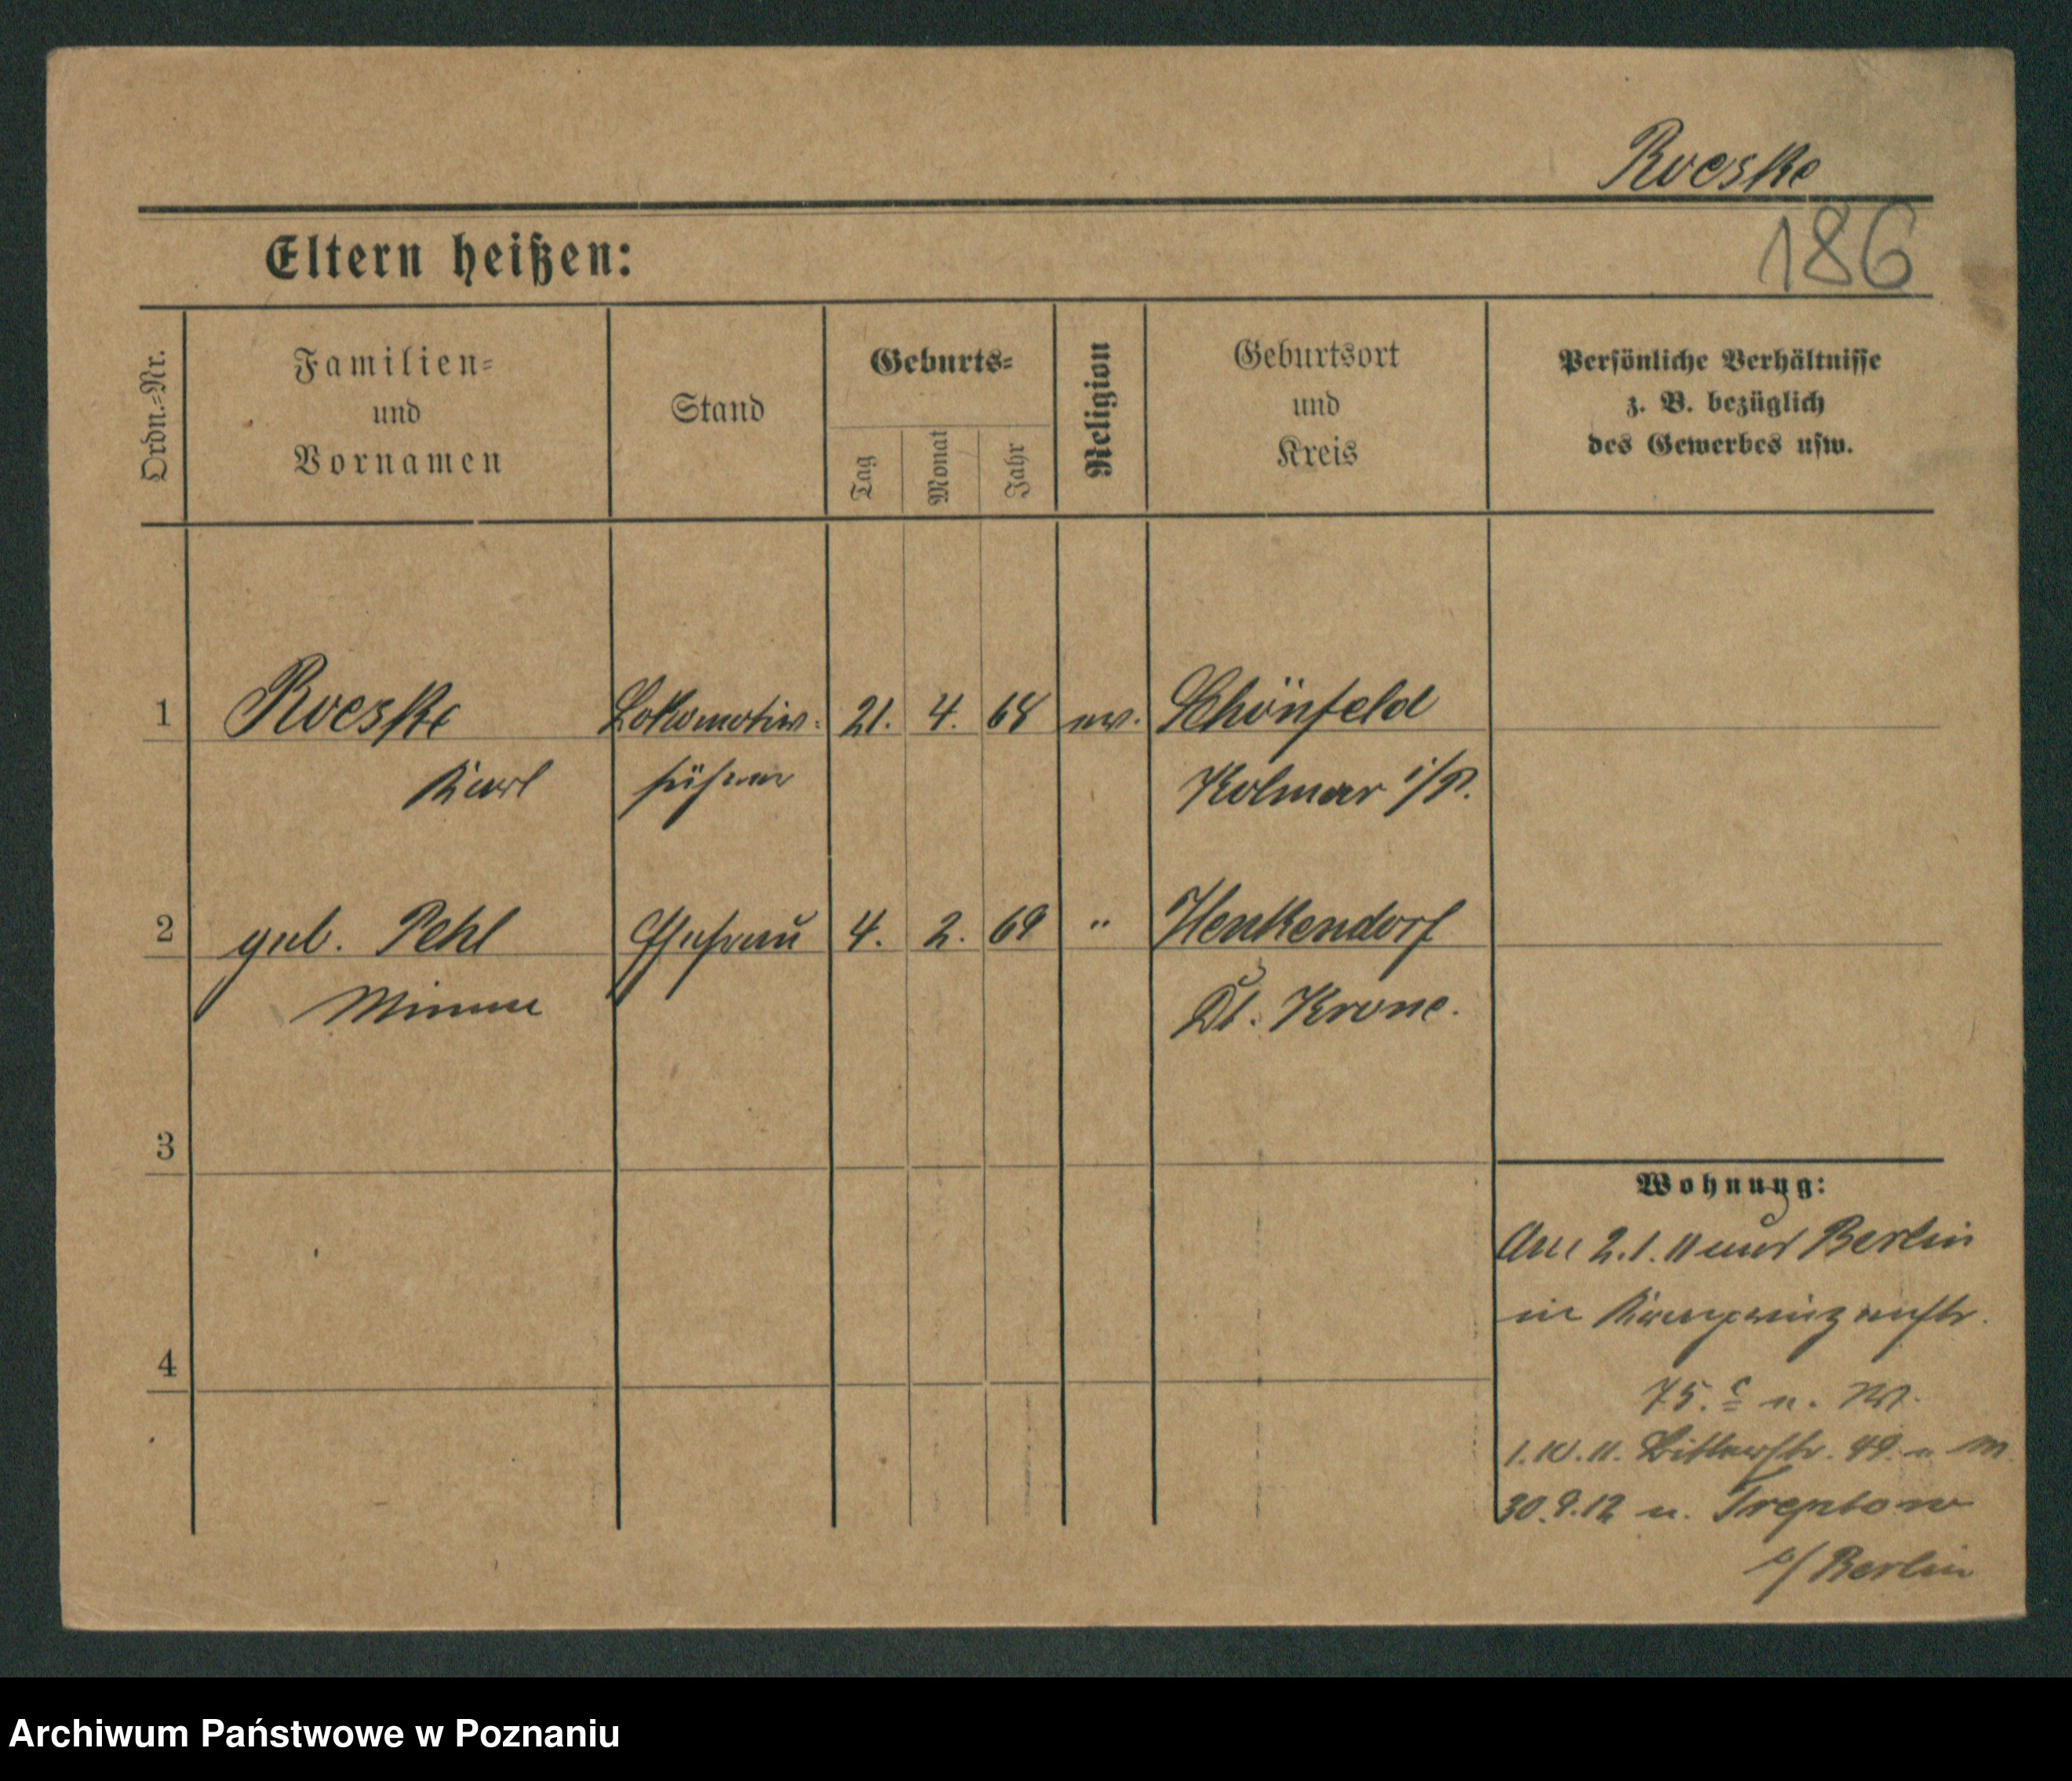 Roeske
186
Eltern heißen:
Ordn.-Nr.
Familien-
und
Vornamen
Stand
Geburts-
Tag
Monat
Jahr
Religion
Geburtsort
und
Kreis
Persönliche Verhältnisse
z. B. bezüglich
des Gewerbes usw.
1 Roeske Lokomotiv- 21. 4. 68 ev. Schönfeld
Karl führer Kolmar i/P.
2 geb. Pehl Ehefrau 4. 2. 69 " Henkendorf
Minna Dt. Krone.
3
4
Wohnung:
Am 2.1.11 von Berlin
in Kronprinzenstr.
75. n. M.
1.10.11. Bitterstr. 49. n. M.
30.9.12 n. Treptow
b/ Berlin
Archiwum Państwowe w Poznaniu